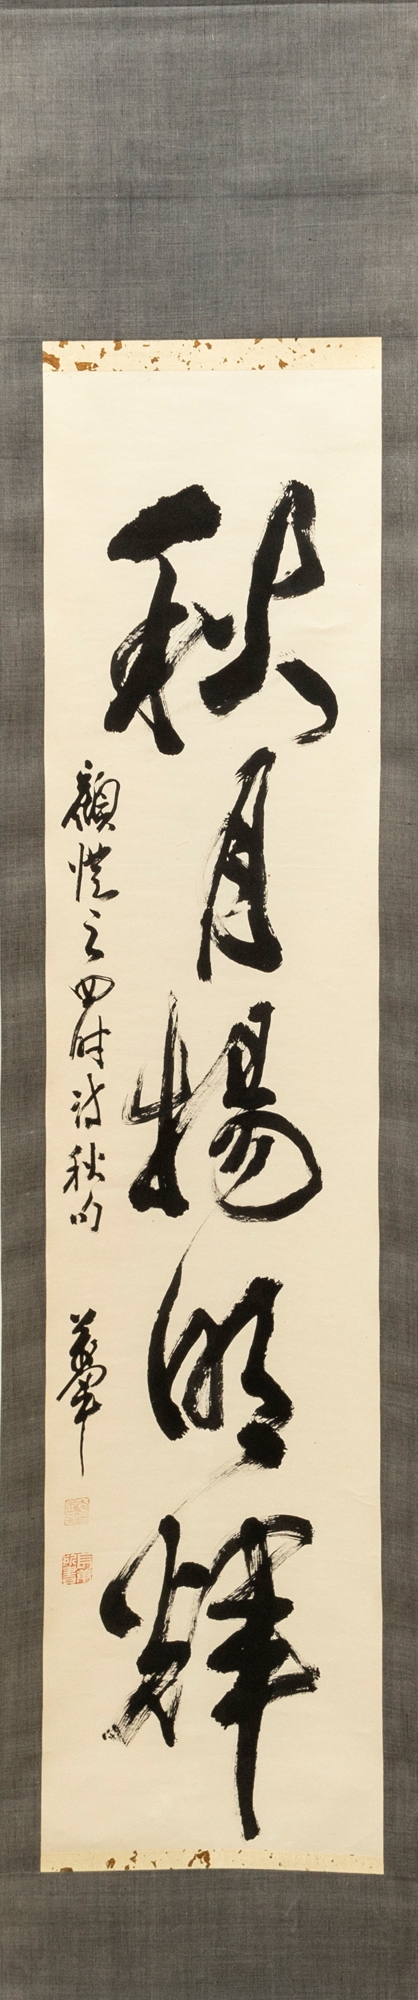 秋月揚明輝
顧愷之四時詩秋句